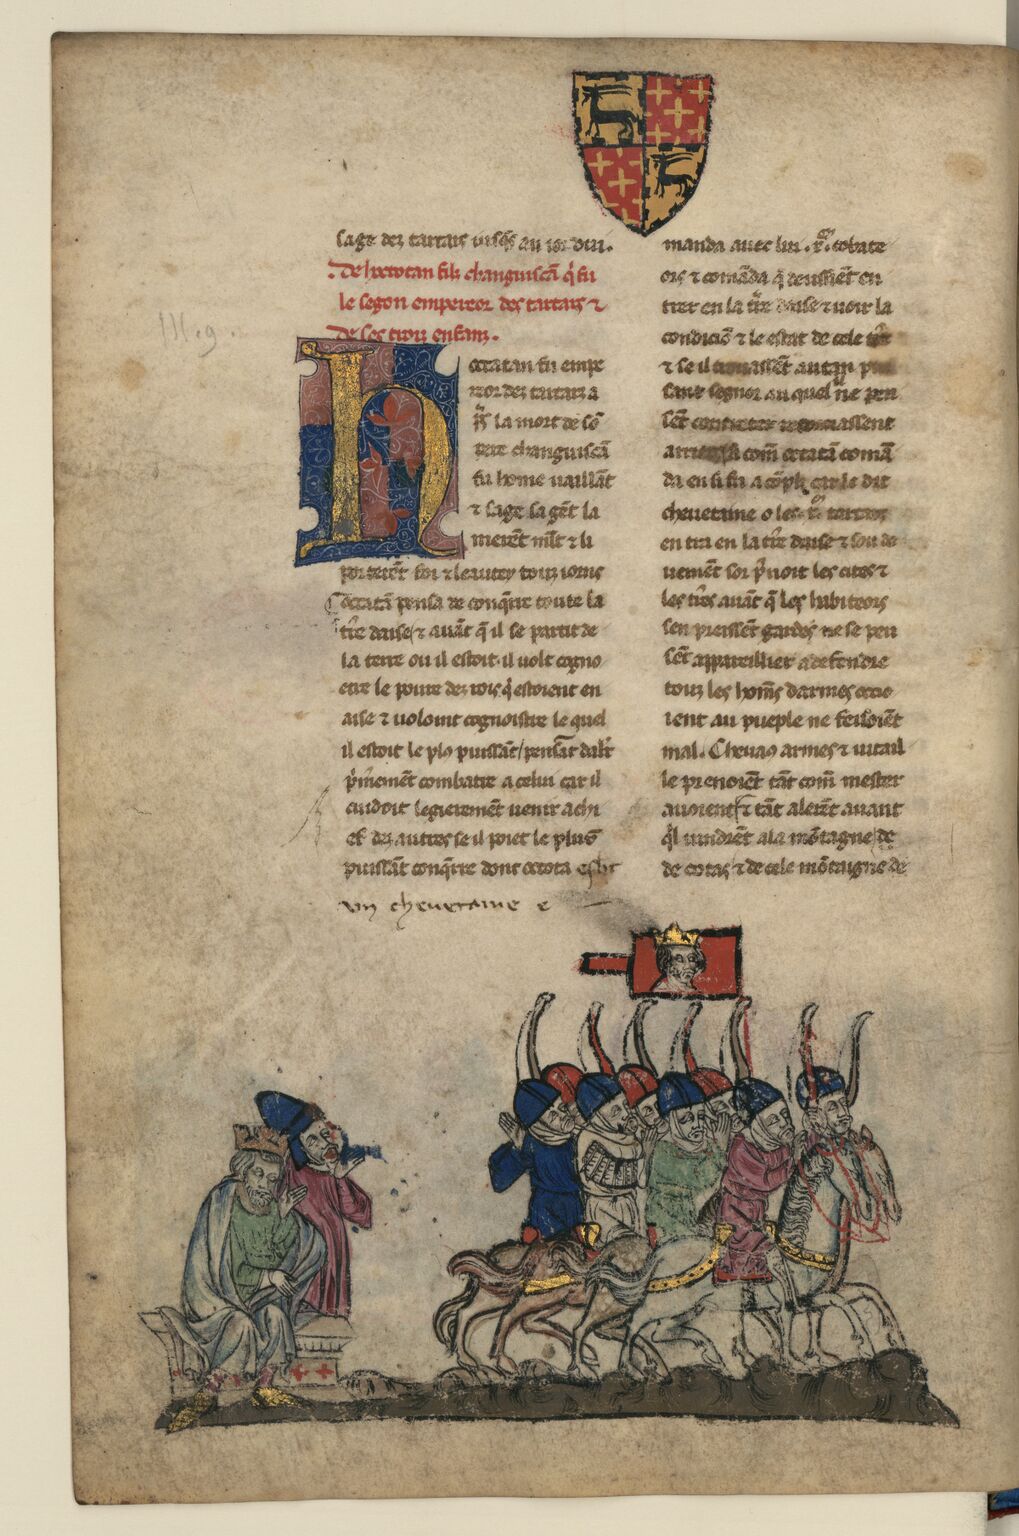 sage dez tartars iusq̃s au ior dui.
De hoctotan filz changuiscã q̃ fu
le segon empereor des tartars ⁊
de ses trois enfanz.
Hoctatan fu empe
reor dez tartarz a
p̃s la mort de sõ
pere changuiscã
fu home uaillãt
⁊ sage sa gẽt la
merẽt mlt ⁊ li
porterẽt foi ⁊ leautey touz iorns
Octatã pensa de conq̃rre toute la
tr̃e daise ⁊ auãt q̃ il se partit de
la terre ou il estoit il uolt cogno
etre le poure dez rois q̃ estoient en
aise ⁊ uoloint cognoistre le quel
il estoit le plus puissãt pensãt dalr̃
p̃mement combatre a celui car il
cuidoit legierement uenir a chi
ef dez autres se il poiet le plus
puissãt conq̃rre dont octota eslit
un cheuetaine e
manda auec lui .x.ᵐ. cobate
ors ⁊ comãda q̃ deussiẽt en
trer en la tr̃e daise ⁊ uoir la
condiciõ ⁊ le estat de cele tr̃e
⁊ se il trouassẽt autun pui
sant segnor au quel il ne peu
sẽt contrester retornassent
arriere si comẽ octatã comã
da en si fu acõpli car le dit
cheuetaine o les .x.ᵐ. tartars
en tra en la tr̃e daise ⁊ sou de
nement sorp̃noit les cites ⁊
les tr̃es auãt q̃ les habiteors
sen preissẽt gardes ne se peu
sẽt appareillier a defendre
touz les homẽs darmes ocio
ient au pueple ne fesoiẽt
mal. Cheuaus armes ⁊ uitail
le prenoiẽt tãt comẽ mester
auoient ⁊ tãt alerẽt auant
q̃l uindrẽt a la mõtagne de
de cotas ⁊ de cele mõtaigne de